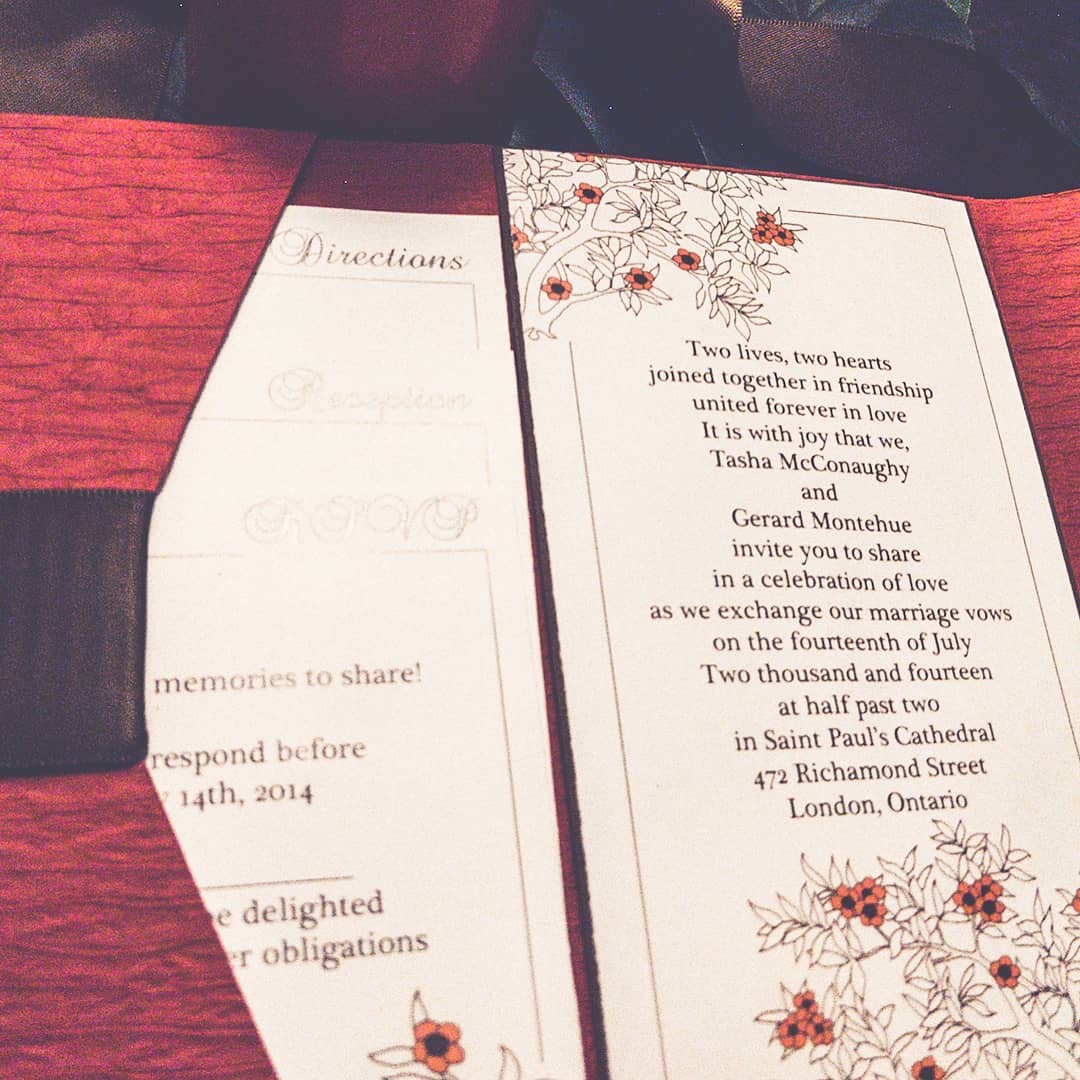 Directions
Reception
RSVP
memories to share!
respond before
14th, 2014
delighted
obligations
Two lives, two hearts
joined together in friendship
united forever in love
It is with joy that we,
Tasha McConaughy
and
Gerard Montehue
invite you to share
in a celebration of love
as we exchange our marriage vows
on the fourteenth of July
Two thousand and fourteen
at half past two
in Saint Paul's Cathedral
472 Richamond Street
London, Ontario